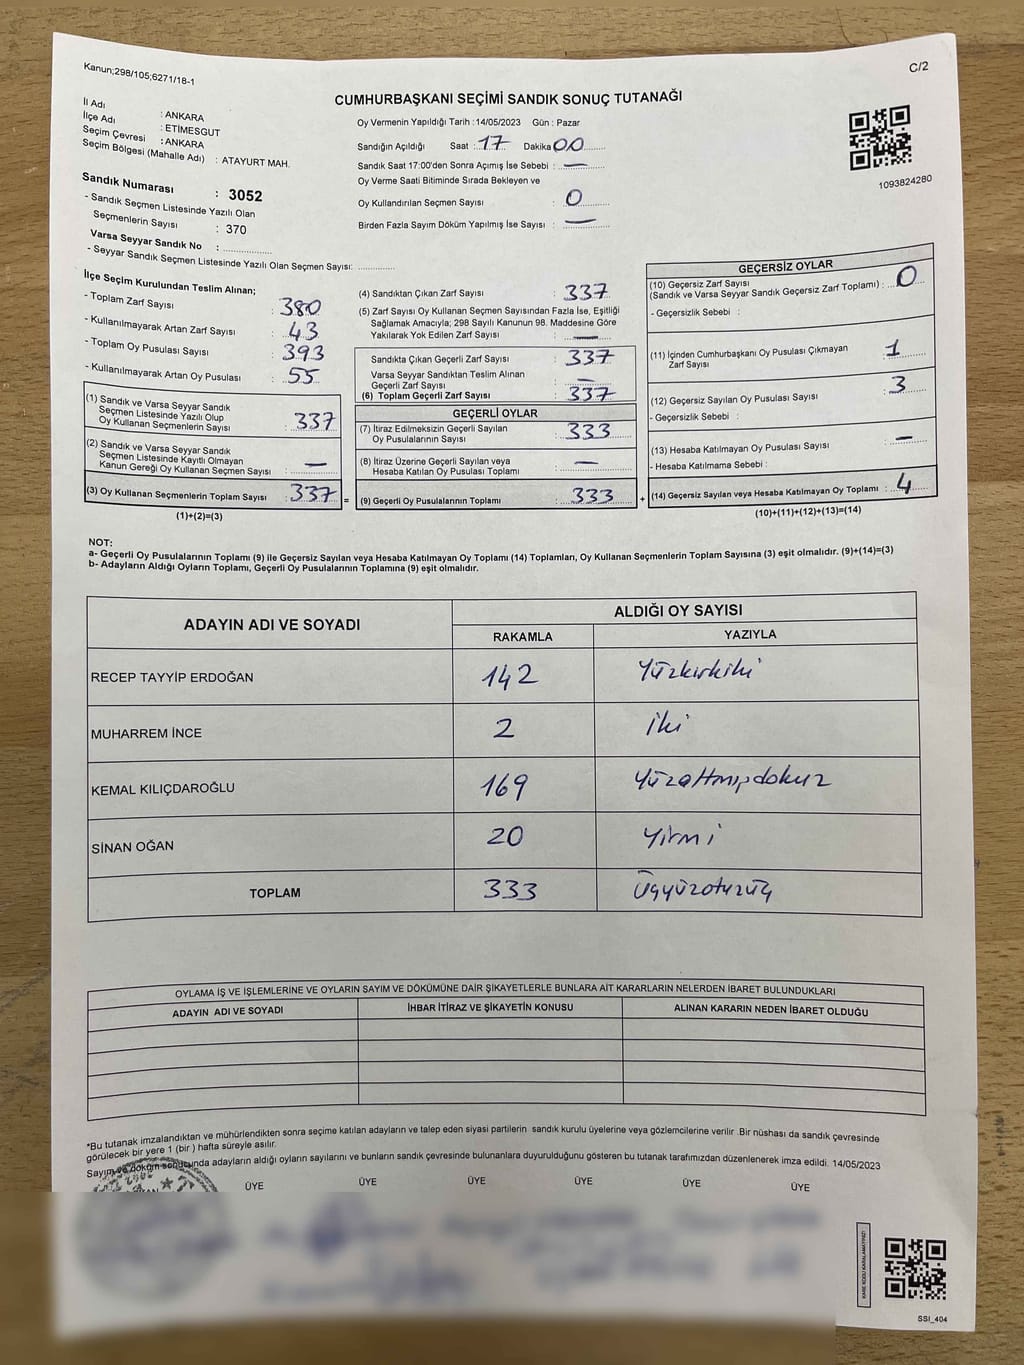 Kanun;298/105;6271/18-1
C/2
CUMHURBAŞKANI SEÇİMİ SANDIK SONUÇ TUTANAĞI
İl Adı : ANKARA
İlçe Adı : ETİMESGUT
Seçim Çevresi : ANKARA
Seçim Bölgesi (Mahalle Adı) : ATAYURT MAH.
Sandık Numarası : 3052
- Sandık Seçmen Listesinde Yazılı Olan
Seçmenlerin Sayısı : 370
Varsa Seyyar Sandık No : ..............
- Seyyar Sandık Seçmen Listesinde Yazılı Olan Seçmen Sayısı: ............
Oy Vermenin Yapıldığı Tarih : 14/05/2023 Gün : Pazar
Sandığın Açıldığı Saat : 17 Dakika 00
Sandık Saat 17:00'den Sonra Açımış İse Sebebi : —
Oy Verme Saati Bitiminde Sırada Bekleyen ve
Oy Kullandırılan Seçmen Sayısı : 0
Birden Fazla Sayım Döküm Yapılmış İse Sayısı : —
1093824280
İlçe Seçim Kurulundan Teslim Alınan;
- Toplam Zarf Sayısı : 380
- Kullanılmayarak Artan Zarf Sayısı : 43
- Toplam Oy Pusulası Sayısı : 393
- Kullanılmayarak Artan Oy Pusulası : 55
(1) Sandık ve Varsa Seyyar Sandık
Seçmen Listesinde Yazılı Olup
Oy Kullanan Seçmenlerin Sayısı : 337
(2) Sandık ve Varsa Seyyar Sandık
Seçmen Listesinde Kayıtlı Olmayan
Kanun Gereği Oy Kullanan Seçmen Sayısı : —
(3) Oy Kullanan Seçmenlerin Toplam Sayısı : 337 =
(1)+(2)=(3)
(4) Sandıktan Çıkan Zarf Sayısı : 337
(5) Zarf Sayısı Oy Kullanan Seçmen Sayısından Fazla İse, Eşitliği
Sağlamak Amacıyla; 298 Sayılı Kanunun 98. Maddesine Göre
Yakılarak Yok Edilen Zarf Sayısı : —
Sandıkta Çıkan Geçerli Zarf Sayısı : 337
Varsa Seyyar Sandıktan Teslim Alınan
Geçerli Zarf Sayısı : —
(6) Toplam Geçerli Zarf Sayısı : 337
GEÇERLİ OYLAR
(7) İtiraz Edilmeksizin Geçerli Sayılan
Oy Pusulalarının Sayısı : 333
(8) İtiraz Üzerine Geçerli Sayılan veya
Hesaba Katılan Oy Pusulası Toplamı : —
(9) Geçerli Oy Pusulalarının Toplamı : 333 +
GEÇERSİZ OYLAR
(10) Geçersiz Zarf Sayısı
(Sandık ve Varsa Seyyar Sandık Geçersiz Zarf Toplamı) : 0
- Geçersizlik Sebebi :
(11) İçinden Cumhurbaşkanı Oy Pusulası Çıkmayan
Zarf Sayısı : 1
(12) Geçersiz Sayılan Oy Pusulası Sayısı : 3
- Geçersizlik Sebebi :
(13) Hesaba Katılmayan Oy Pusulası Sayısı : —
- Hesaba Katılmama Sebebi :
(14) Geçersiz Sayılan veya Hesaba Katılmayan Oy Toplamı : 4
(10)+(11)+(12)+(13)=(14)
NOT:
a- Geçerli Oy Pusulalarının Toplamı (9) ile Geçersiz Sayılan veya Hesaba Katılmayan Oy Toplamı (14) Toplamları, Oy Kullanan Seçmenlerin Toplam Sayısına (3) eşit olmalıdır. (9)+(14)=(3)
b- Adayların Aldığı Oyların Toplamı, Geçerli Oy Pusulalarının Toplamına (9) eşit olmalıdır.
ADAYIN ADI VE SOYADI ALDIĞI OY SAYISI
RAKAMLA YAZIYLA
RECEP TAYYİP ERDOĞAN 142 Yüzkırkiki
MUHARREM İNCE 2 iki
KEMAL KILIÇDAROĞLU 169 Yüzaltmışdokuz
SİNAN OĞAN 20 Yirmi
TOPLAM 333 Üçyüzotuzüç
OYLAMA İŞ VE İŞLEMLERİNE VE OYLARIN SAYIM VE DÖKÜMÜNE DAİR ŞİKAYETLERLE BUNLARA AİT KARARLARIN NELERDEN İBARET BULUNDUKLARI
ADAYIN ADI VE SOYADI İHBAR İTİRAZ VE ŞİKAYETİN KONUSU ALINAN KARARIN NEDEN İBARET OLDUĞU
*Bu tutanak imzalandıktan ve mühürlendikten sonra seçime katılan adayların ve talep eden siyasi partilerin sandık kurulu üyelerine veya gözlemcilerine verilir .Bir nüshası da sandık çevresinde
görülecek bir yere 1 (bir ) hafta süreyle asılır.
Sayım ve döküm sonucunda adayların aldığı oyların sayılarını ve bunların sandık çevresinde bulunanlara duyurulduğunu gösteren bu tutanak tarafımızdan düzenlenerek imza edildi. 14/05/2023
ÜYE ÜYE ÜYE ÜYE ÜYE ÜYE
KARE KODU KARALAMAYINIZ!
SSI_404